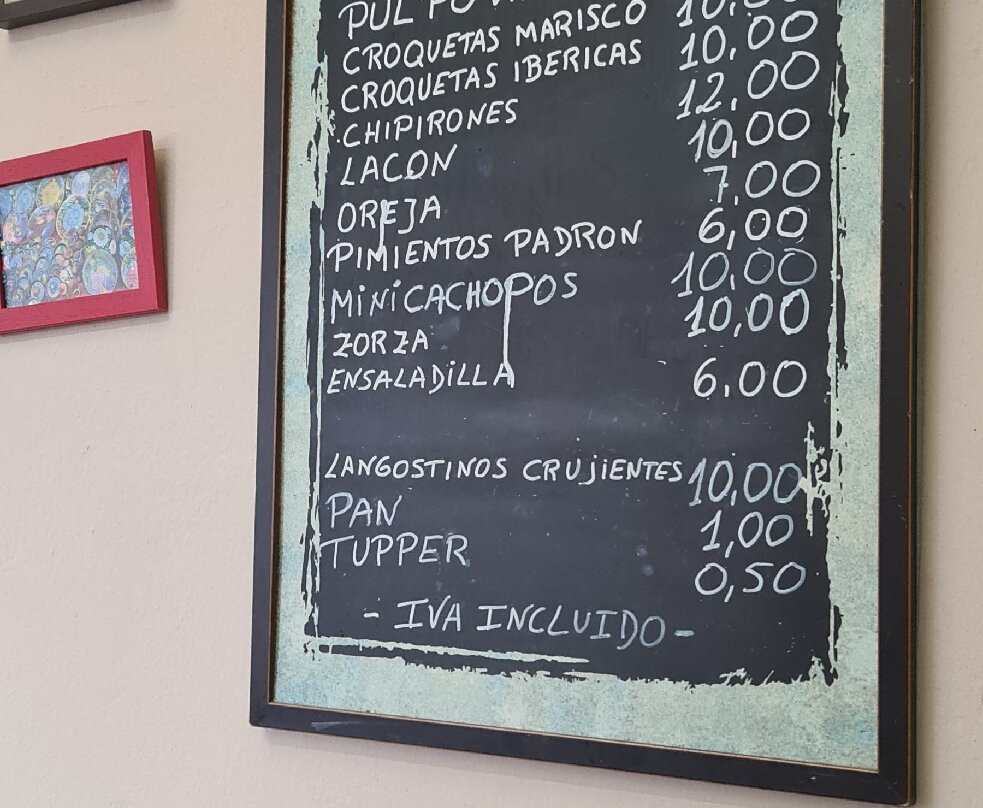 CROQUETAS MARISCO 10,00
CROQUETAS IBERICAS 10,00
CHIPIRONES 12,00
LACON 10,00
OREJA 7,00
PIMIENTOS PADRON 6,00
MINICACHOPOS 10,00
ZORZA 10,00
ENSALADILLA 6,00
LANGOSTINOS CRUJIENTES 10,00
PAN 1,00
TUPPER 0,50
- IVA INCLUIDO -